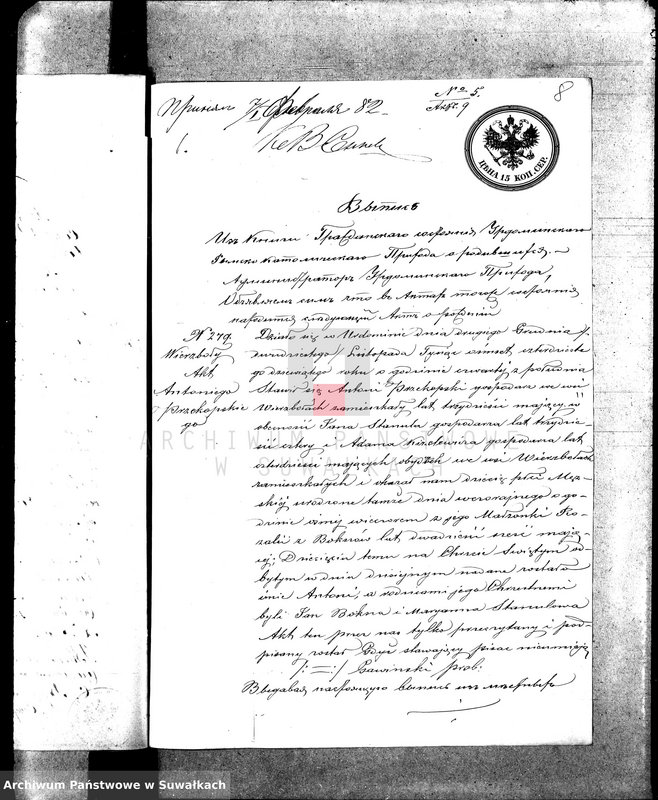 № 5.
Акт. 9
8
Принял 1/1 Февраля 82
1.
ЦѢНА 15 КОП. СЕР.
Выпись
Изъ Книги Гражданскаго состоянія Урдоминскаго
Римско Католическаго Прихода о родившихся.
Администраторъ Урдоминскаго Прихода,
Объявляемъ симъ что въ Актахъ того состоянія
находится следующій Актъ о рожденіи
N. 279.
Wierzboły
Akt
Antoniego
Przekopskie
go
Działo się w Urdominie dnia drugiego Grudnia /
dwudziestego / Listopada Tysiąc ośmset czterdzieste
go dziewiątego roku o godzinie czwartej z południa
Stawił się Antoni Przekopski gospodarz we wsi
Wierzbołach zamieszkały lat trzydzieści mający, w
obecności Jana Stanula gospodarza lat trzydzie-
ści cztery i Adama gospodarza lat
czterdzieści mających obydwóch we wsi Wierzbołach
zamieszkałych i okazał nam dziecię płci Męz-
kiéj urodzone tamże dnia wczorajszego o go-
dzinie ósmej wieczorem z jego Małżonki Ro-
zalii z Boknów lat dwadzieścia sześć mają-
cej; Dziecięciu temu na Chrzcie Świętym od-
bytym w dniu dzisiejszym nadane zostało
imie Antoni, a rodzicami jego Chrzestnemi
byli Jan Bokna i Maryanna Stanulowa
Akt ten przez nas tylko przeczytany i pod-
pisany został Gdyż stawający pisać nieumieją
/:=:/ Ławinski prob:
Выдавая настоящую выпись
ARCHIWUM PAŃSTWOWE
W SUWAŁKACH
Archiwum Państwowe w Suwałkach